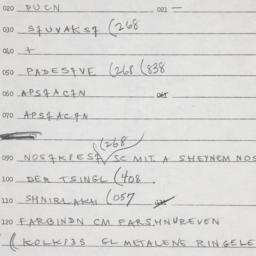 020 PUCN 021 —
030 SŁUVAKSŁ (268
060 +
050 PADESŁVE (268 (838
060 APSŁACŁN
070 APSŁACŁN
(268
090 NOSŁKIESŁ / SC MIT A SHEYNEM NOS
100 DER TSINGL (408
110 SHNIRLAKH (057
120 FARBINDN CM FARSHNUREVEN
((KOLKIЗS GL METALENE RINGELE